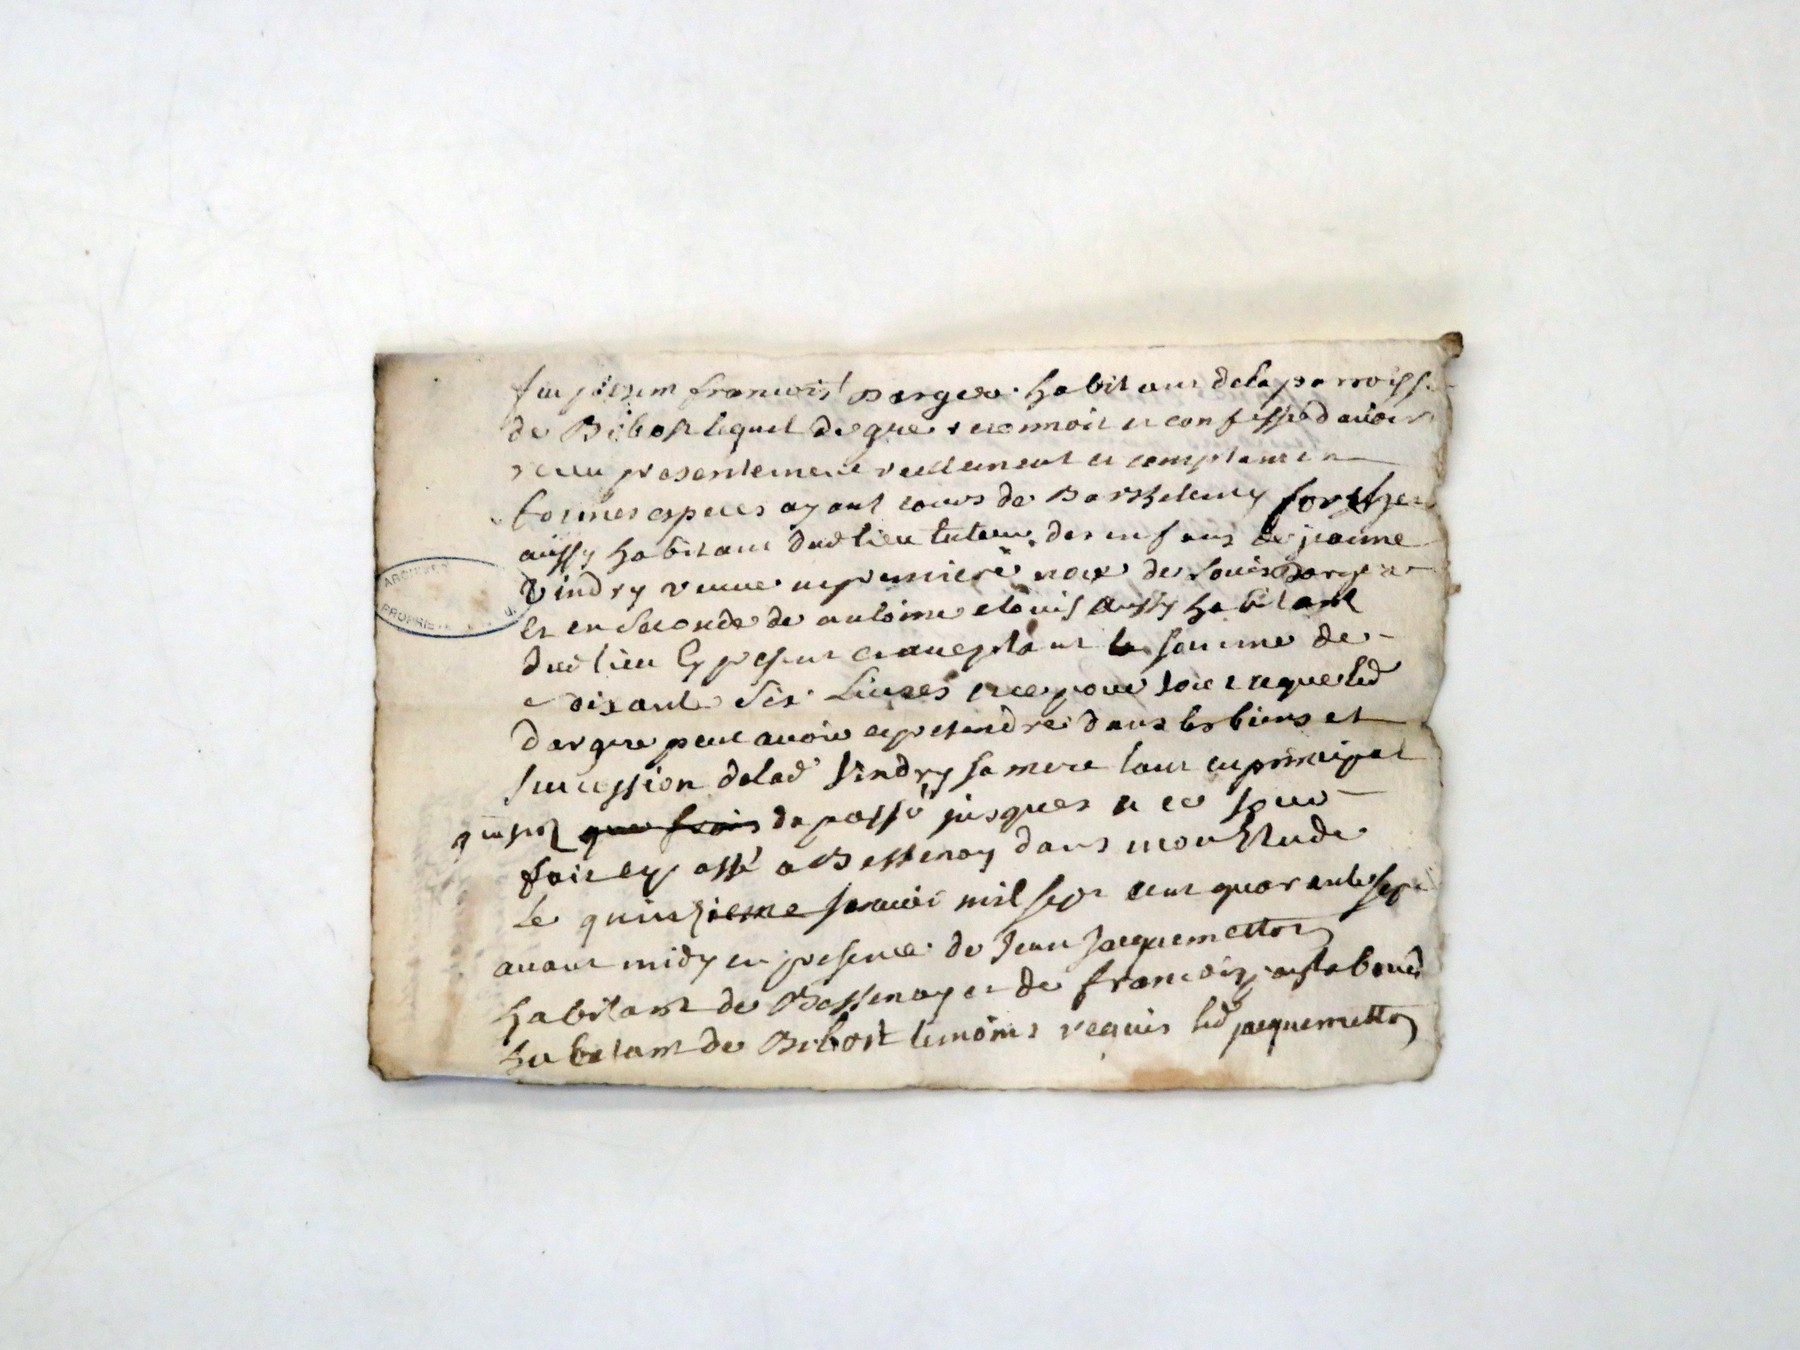 fut present francois Dargere habitant de la parroisse
de Bibost lequel de gre reconnoit et confesse d avoir
receu presentement reellement et comptant en
bonnes especes ayant cours de Barthelemy
aussy habitant dud lieu tuteur des enfans de jeanne
Vindry veuve en premiere noce de Louis Dargere
et en seconde de antoine clavis aussy habitant
dud lieu cy present et acceptant la somme de
soixante six Livres et ce pour tout ce que led
dargere peut avoir et pretendre dans les biens et
succession de lad Vindry sa mere tant en principal
de passé jusques a ce jour
fait et passé a Bessenay dans mon Etude
Le quinzieme janvier mil sept cent quarante sept
avant midy en presence de Jean Jacquemetton
habitant de Bessenay et de francois
habitant de Bibost temoins requis led jacquemetton
ARCHIVES
PROPRIETE